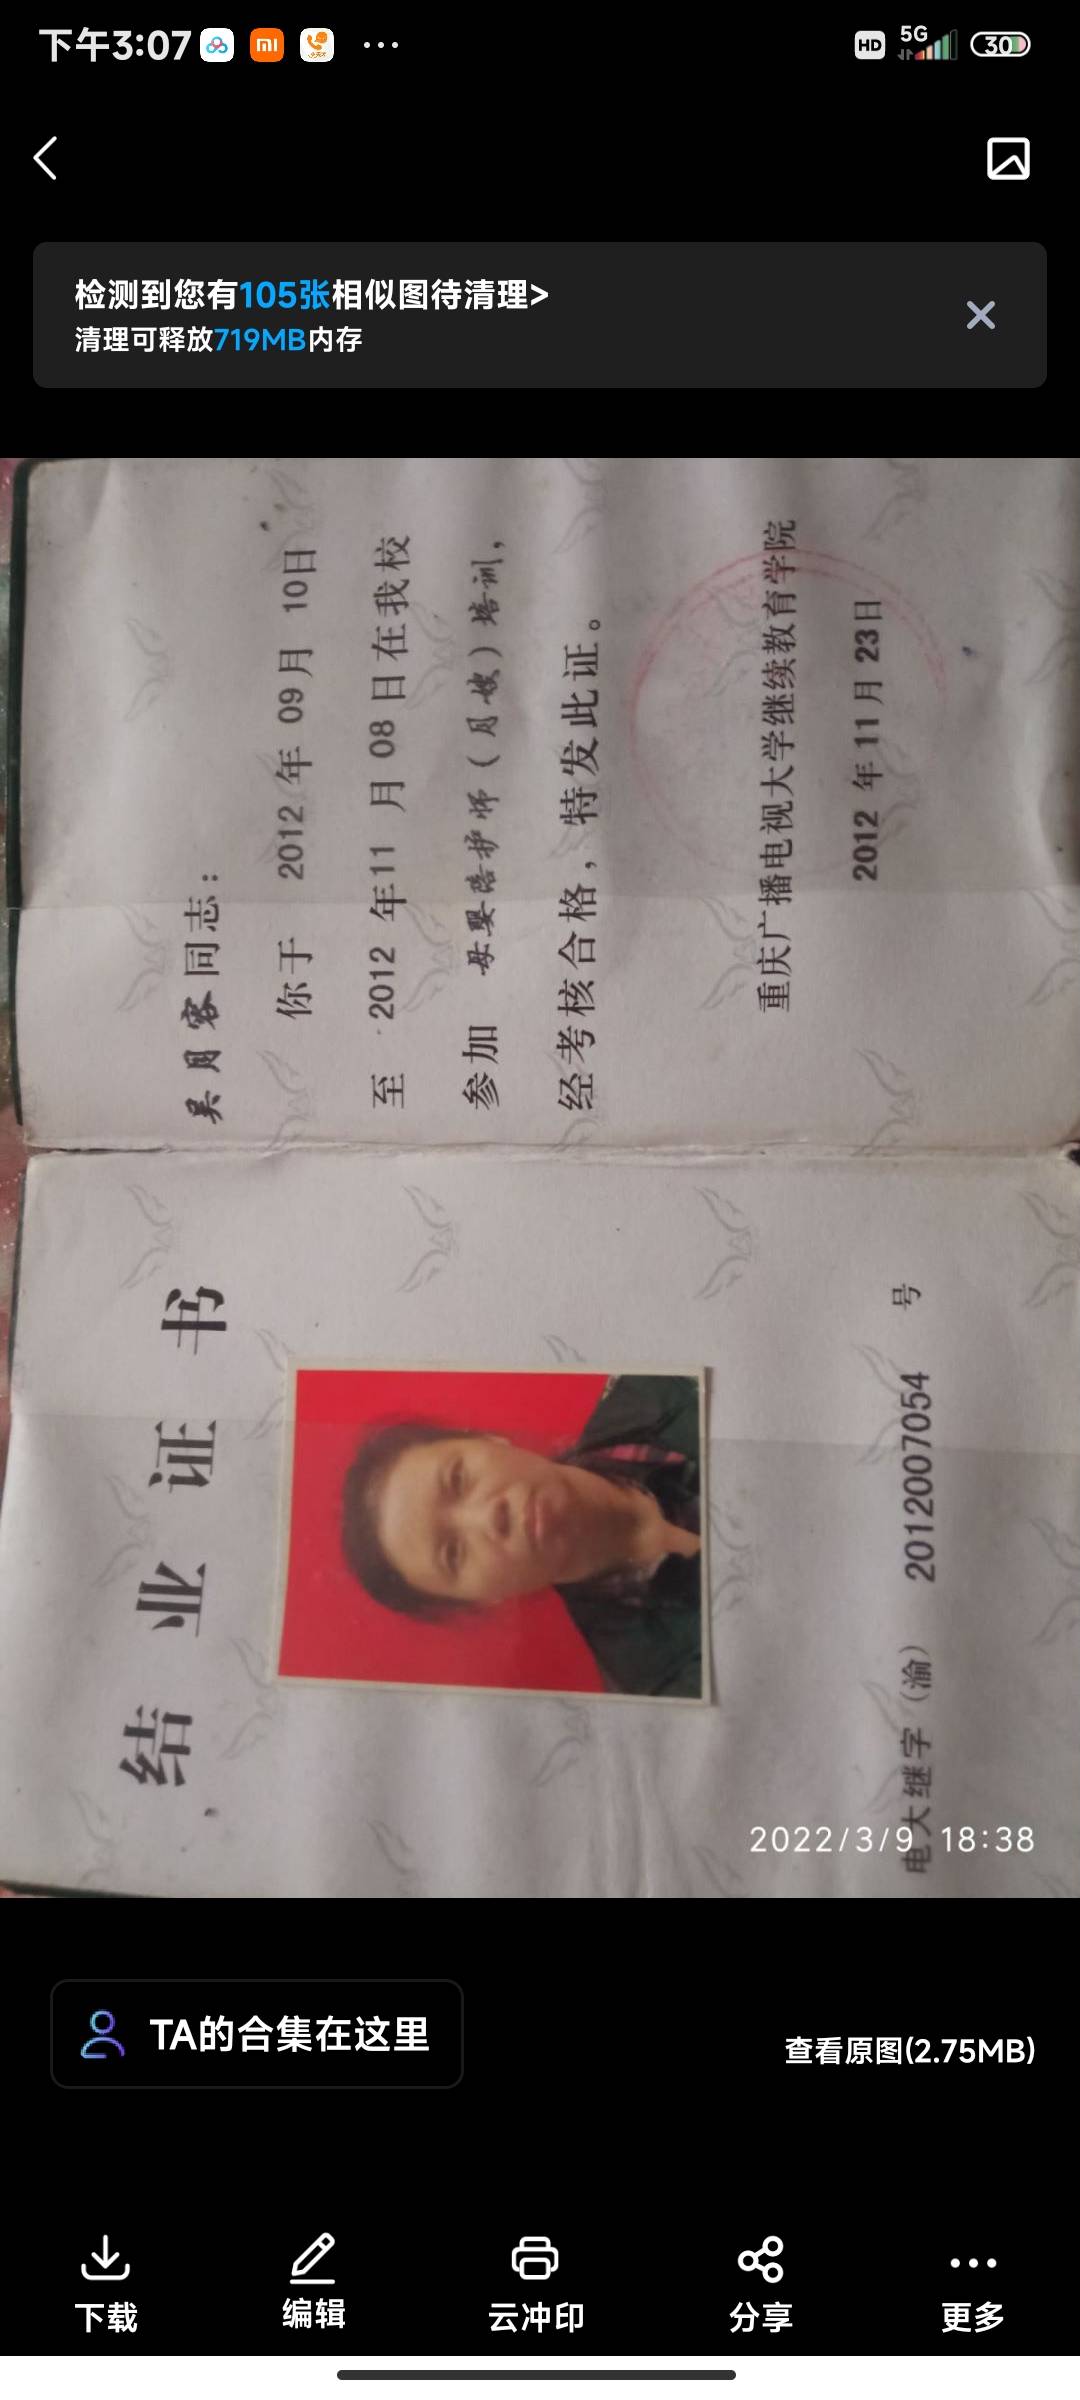 下午3:07
HD 5G 30
检测到您有105张相似图待清理>
清理可释放719MB内存
结业证书
电大继字（渝） 2012007054 号
吴月容同志：
你于 2012年09月10日
至 2012年11月08日在我校
参加 母婴陪护师（月嫂）培训，
经考核合格，特发此证。
重庆广播电视大学继续教育学院
2012年11月23日
2022/3/9 18:38
TA的合集在这里
查看原图(2.75MB)
下载 编辑 云冲印 分享 更多